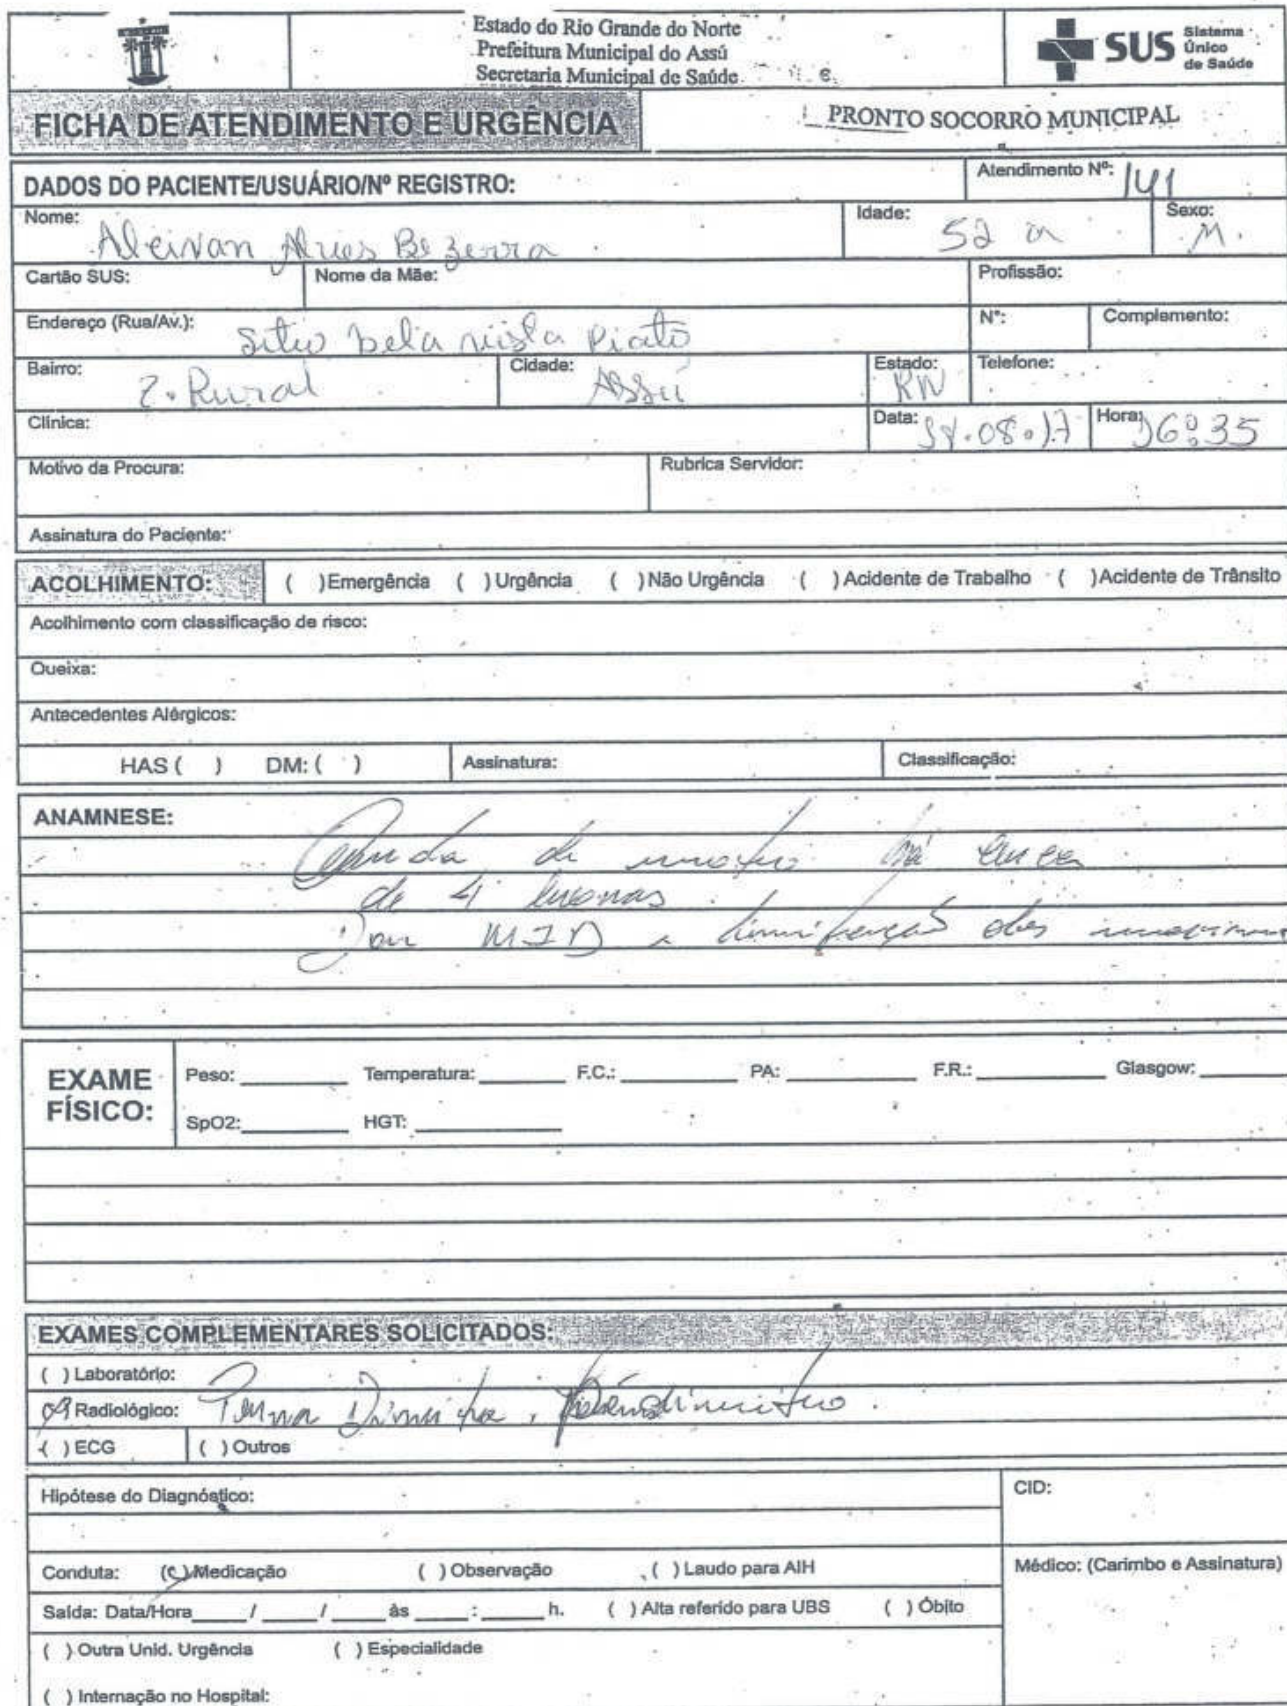 Estado do Rio Grande do Norte
Prefeitura Municipal do Assú
Secretaria Municipal de Saúde
SUS Sistema Único de Saúde
FICHA DE ATENDIMENTO E URGÊNCIA
PRONTO SOCORRO MUNICIPAL
DADOS DO PACIENTE/USUÁRIO/Nº REGISTRO:
Atendimento Nº: 141
Nome: Aleivan Alves Bezerra
Idade: 52 a
Sexo: M.
Cartão SUS:
Nome da Mãe:
Profissão:
Endereço (Rua/Av.): Sitio bela vista Piató
N°:
Complemento:
Bairro: Z. Rural
Cidade: Assú
Estado: RN
Telefone:
Clínica:
Data: .08.17
Hora: 16:35
Motivo da Procura:
Rubrica Servidor:
Assinatura do Paciente:
ACOLHIMENTO: ( )Emergência ( )Urgência ( )Não Urgência ( )Acidente de Trabalho ( )Acidente de Trânsito
Acolhimento com classificação de risco:
Queixa:
Antecedentes Alérgicos:
HAS ( ) DM: ( )
Assinatura:
Classificação:
ANAMNESE:
Queda de moto há cerca
de 4 horas.
Dor MID e limitação dos
EXAME FÍSICO:
Peso: ____ Temperatura: ____ F.C.: ____ PA: ____ F.R.: ____ Glasgow: ____
SpO2: ____ HGT: ____
EXAMES COMPLEMENTARES SOLICITADOS:
( ) Laboratório:
(X) Radiológico: Perna Direita,
( ) ECG ( ) Outros
Hipótese do Diagnóstico:
CID:
Conduta: ( ) Medicação ( ) Observação ( ) Laudo para AIH
Médico: (Carimbo e Assinatura)
Saída: Data/Hora ____/____/____ às ____:____h. ( ) Alta referido para UBS ( ) Óbito
( ) Outra Unid. Urgência ( ) Especialidade
( ) Internação no Hospital: